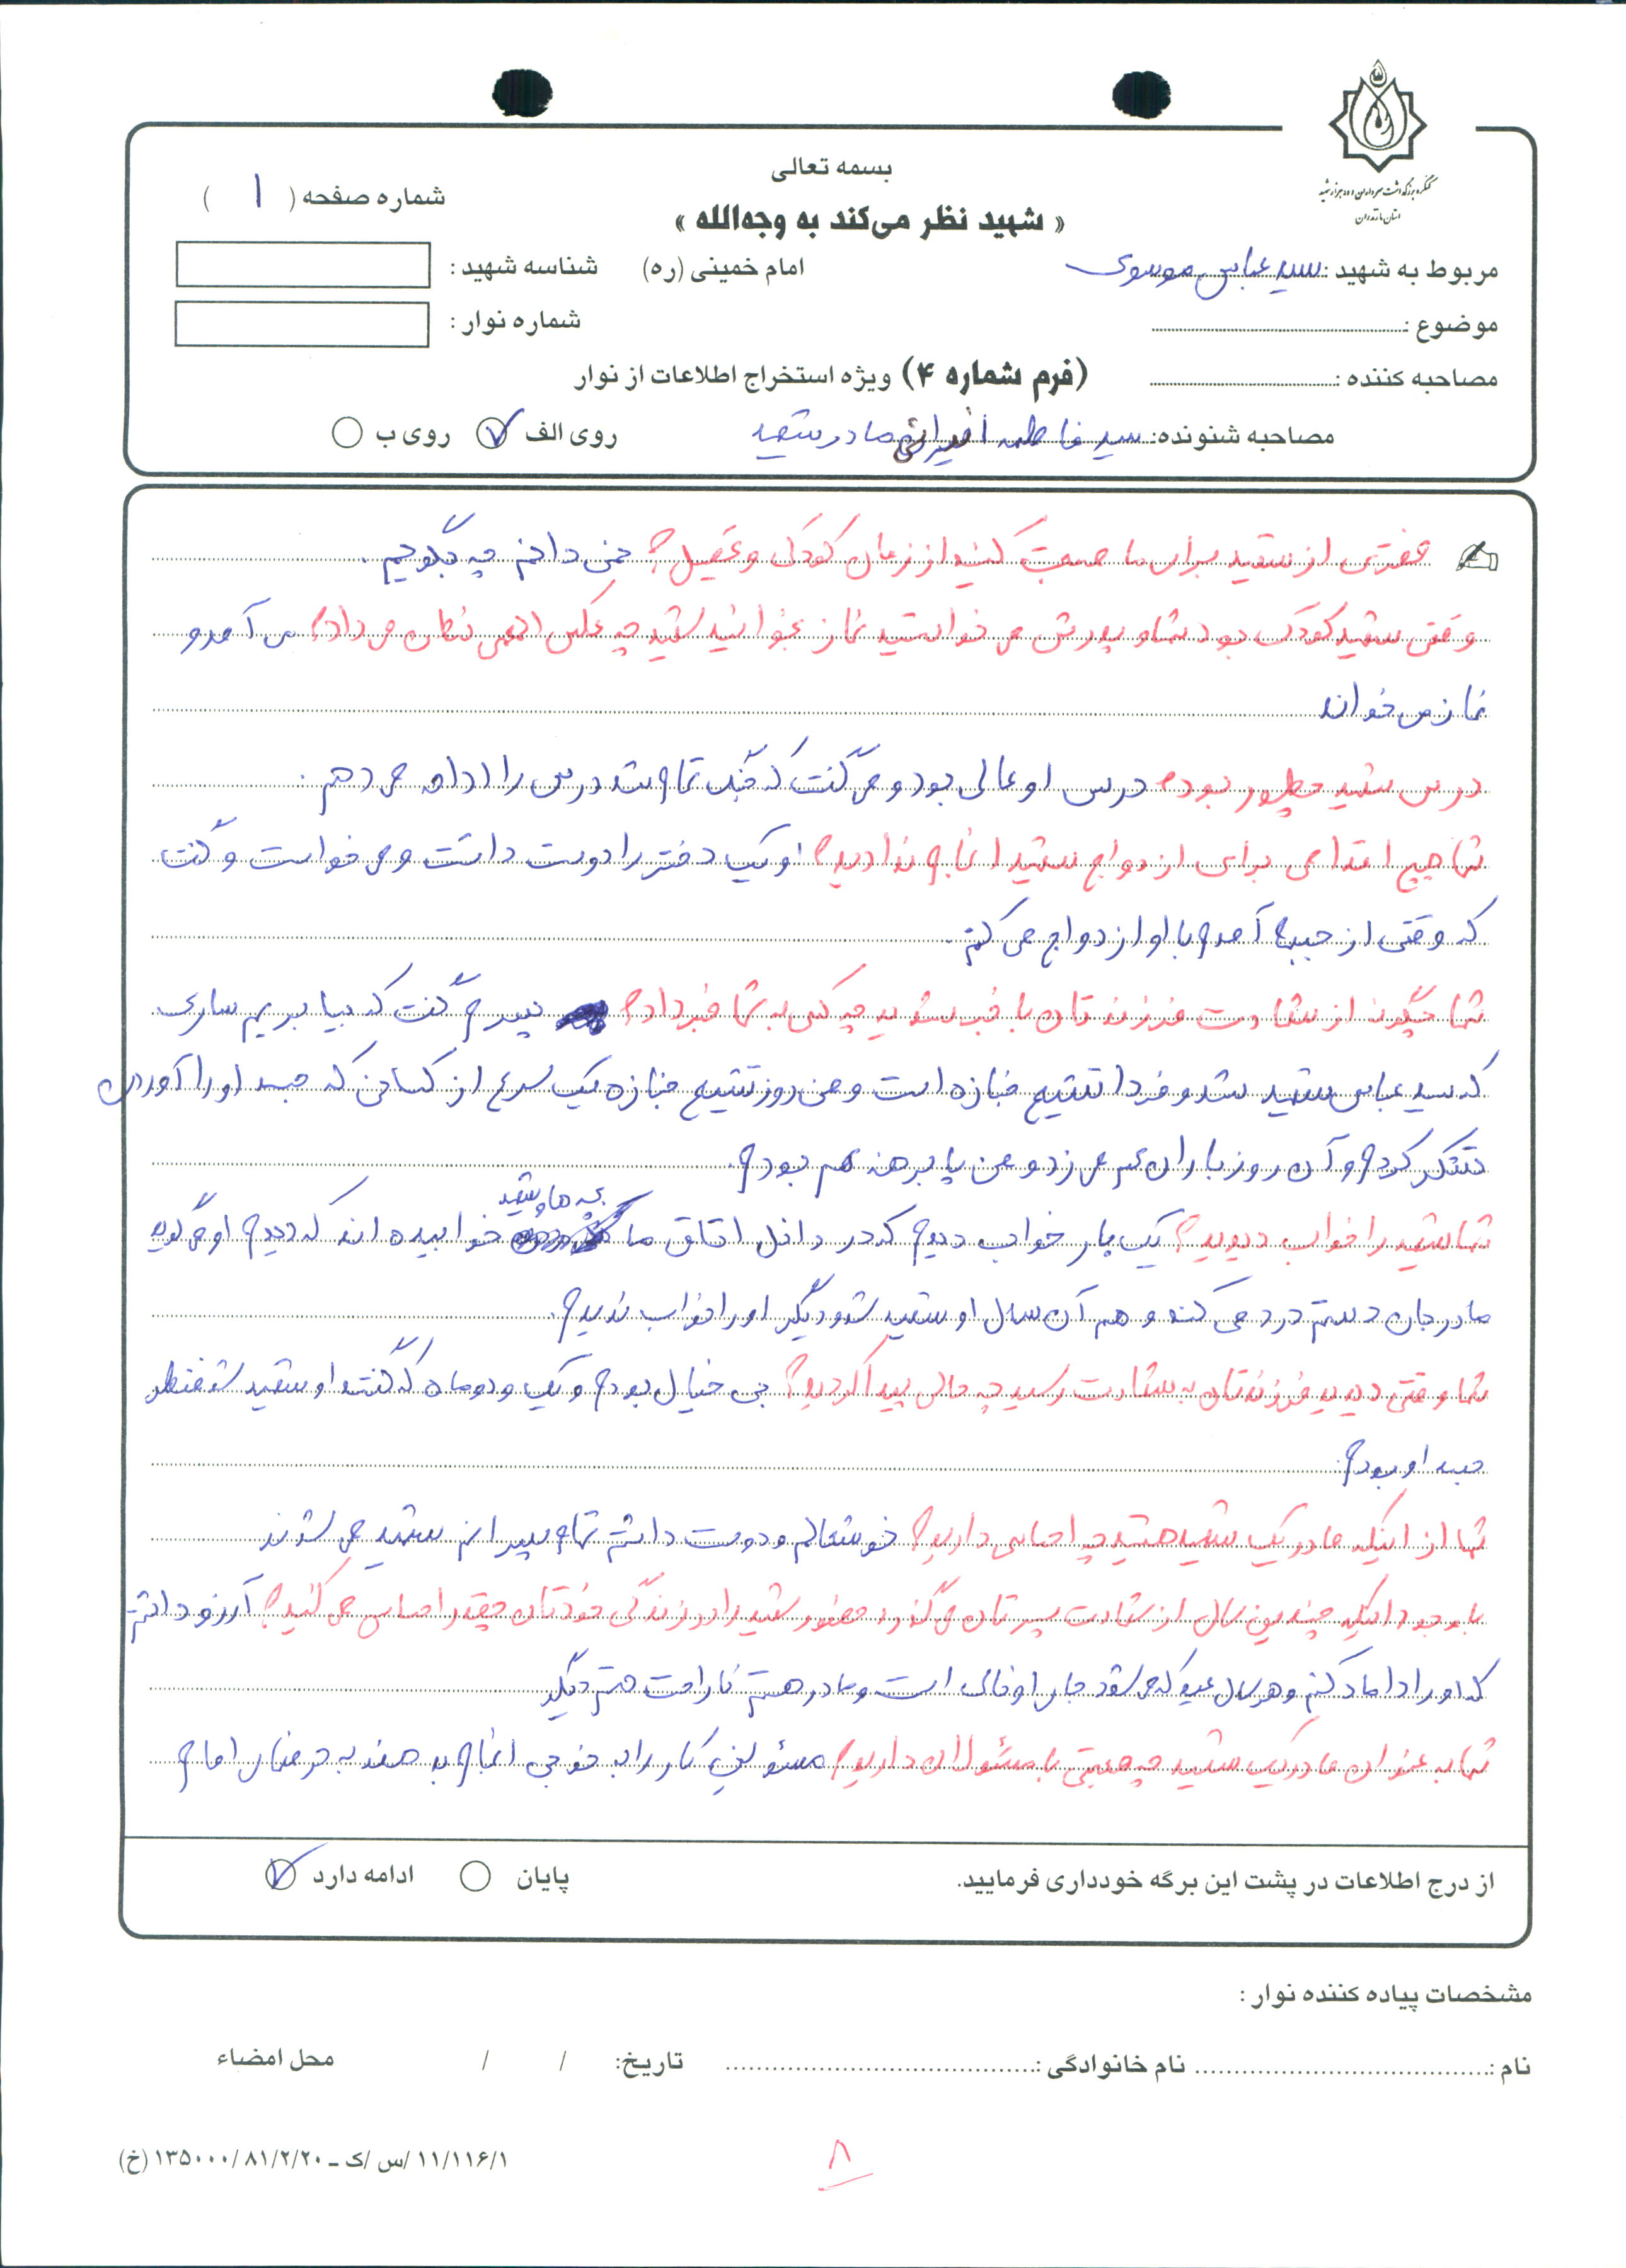 بسمه تعالی
« شهید نظر می‌کند به وجه‌الله »
امام خمینی (ره)
کنگره بزرگداشت سرداران و ده هزار شهید
استان مازندران
شماره صفحه ( ۱ )
مربوط به شهید : سید عباس موسوی
شناسه شهید :
موضوع :
شماره نوار :
مصاحبه کننده :
(فرم شماره ۴) ویژه استخراج اطلاعات از نوار
مصاحبه شنونده: سید فاطمه مادر شهید
روی الف روی ب
از شهید برای ما صحبت کنید از زمان کودکی و تحصیل؟ نمی دانم چه بگویم.
وقتی شهید کودک بود شما و پدرش می خواستید نماز بخوانید شهید چه عکس العملی نشان می داد؟ می آمد و
نماز می خواند
درس شهید چطور بود؟ درس او عالی بود و می گفت که جنگ تمام شد درس را ادامه می دهم.
شما هیچ اقدامی برای ازدواج شهید انجام ندادید؟ او یک دختر را دوست داشت و می خواست و گفت
که وقتی از جبهه آمدم با او ازدواج می کنم.
شما چگونه از شهادت فرزندتان با خبر شدید چه کسی به شما خبر داد؟ پسرم گفت که بیا بریم ساری
که سید عباس شهید شد و فردا تشییع جنازه است و من روز تشییع جنازه یک سری از کسانی که جسد او را آوردن
تشکر کردم و آن روز باران هم می زد و من پا برهنه هم بودم.
شما شهید را خواب دیدید؟ یک بار خواب دیدم که در داخل اتاق ما بچه ها خوابیده اند که دیدم او می گوید
مادر جان دستم درد می کند و هم آن سال او شهید شد و دیگر او را خواب ندیدم.
شما وقتی دیدید فرزندتان به شهادت رسید چه حالی پیدا کردید؟ بی خیال بودم و یک و دو ماه که گفتند او شهید شد منتظر
جسد او بودم.
شما از اینکه مادر یک شهید هستید چه احساسی دارید؟ خوشحالم و دوست داشتم تمام پسرانم شهید می شدند
با وجود اینکه چندین سال از شهادت پسرتان می گذرد حضور شهید را در زندگی خودتان چقدر احساس می کنید؟ آرزو داشتم
که او را داماد کنم و هر سال عید که می شود جای او خالی است و مادر هستم ناراحت هستم دیگر
شما به عنوان مادر یک شهید چه صحبتی با مسئولان دارید؟ مسئولین کار را به خوبی انجام بدهند به فرمان امام
از درج اطلاعات در پشت این برگه خودداری فرمایید.
پایان ادامه دارد
مشخصات پیاده کننده نوار :
نام : نام خانوادگی : تاریخ: / / محل امضاء
۱۱/۱۱۶/۱ /س /ک ـ ۸۱/۲/۲۰ /۱۳۵۰۰۰ (خ)
۸